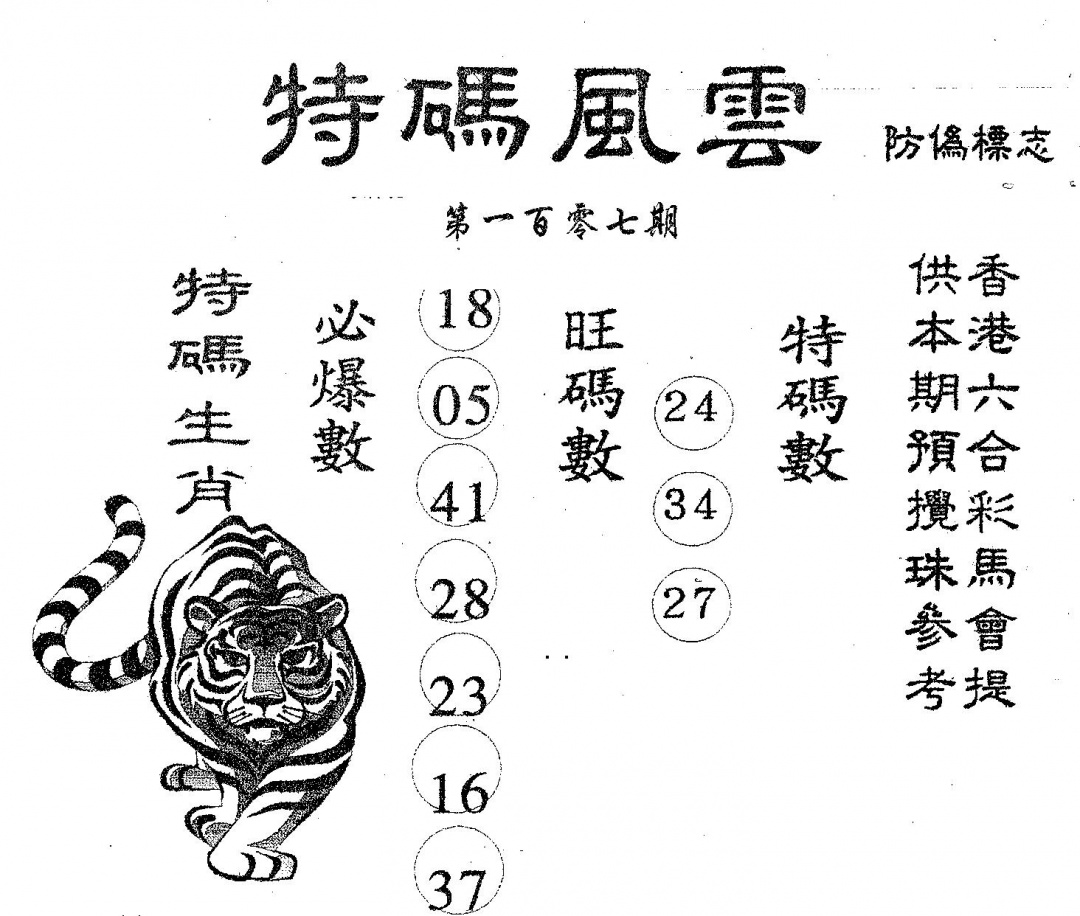 特碼風雲
防偽標志
第一百零七期
香港六合彩馬會提
供本期預攪珠參考
特碼數
24
34
27
旺碼數
18
05
41
28
23
16
37
必爆數
特碼生肖